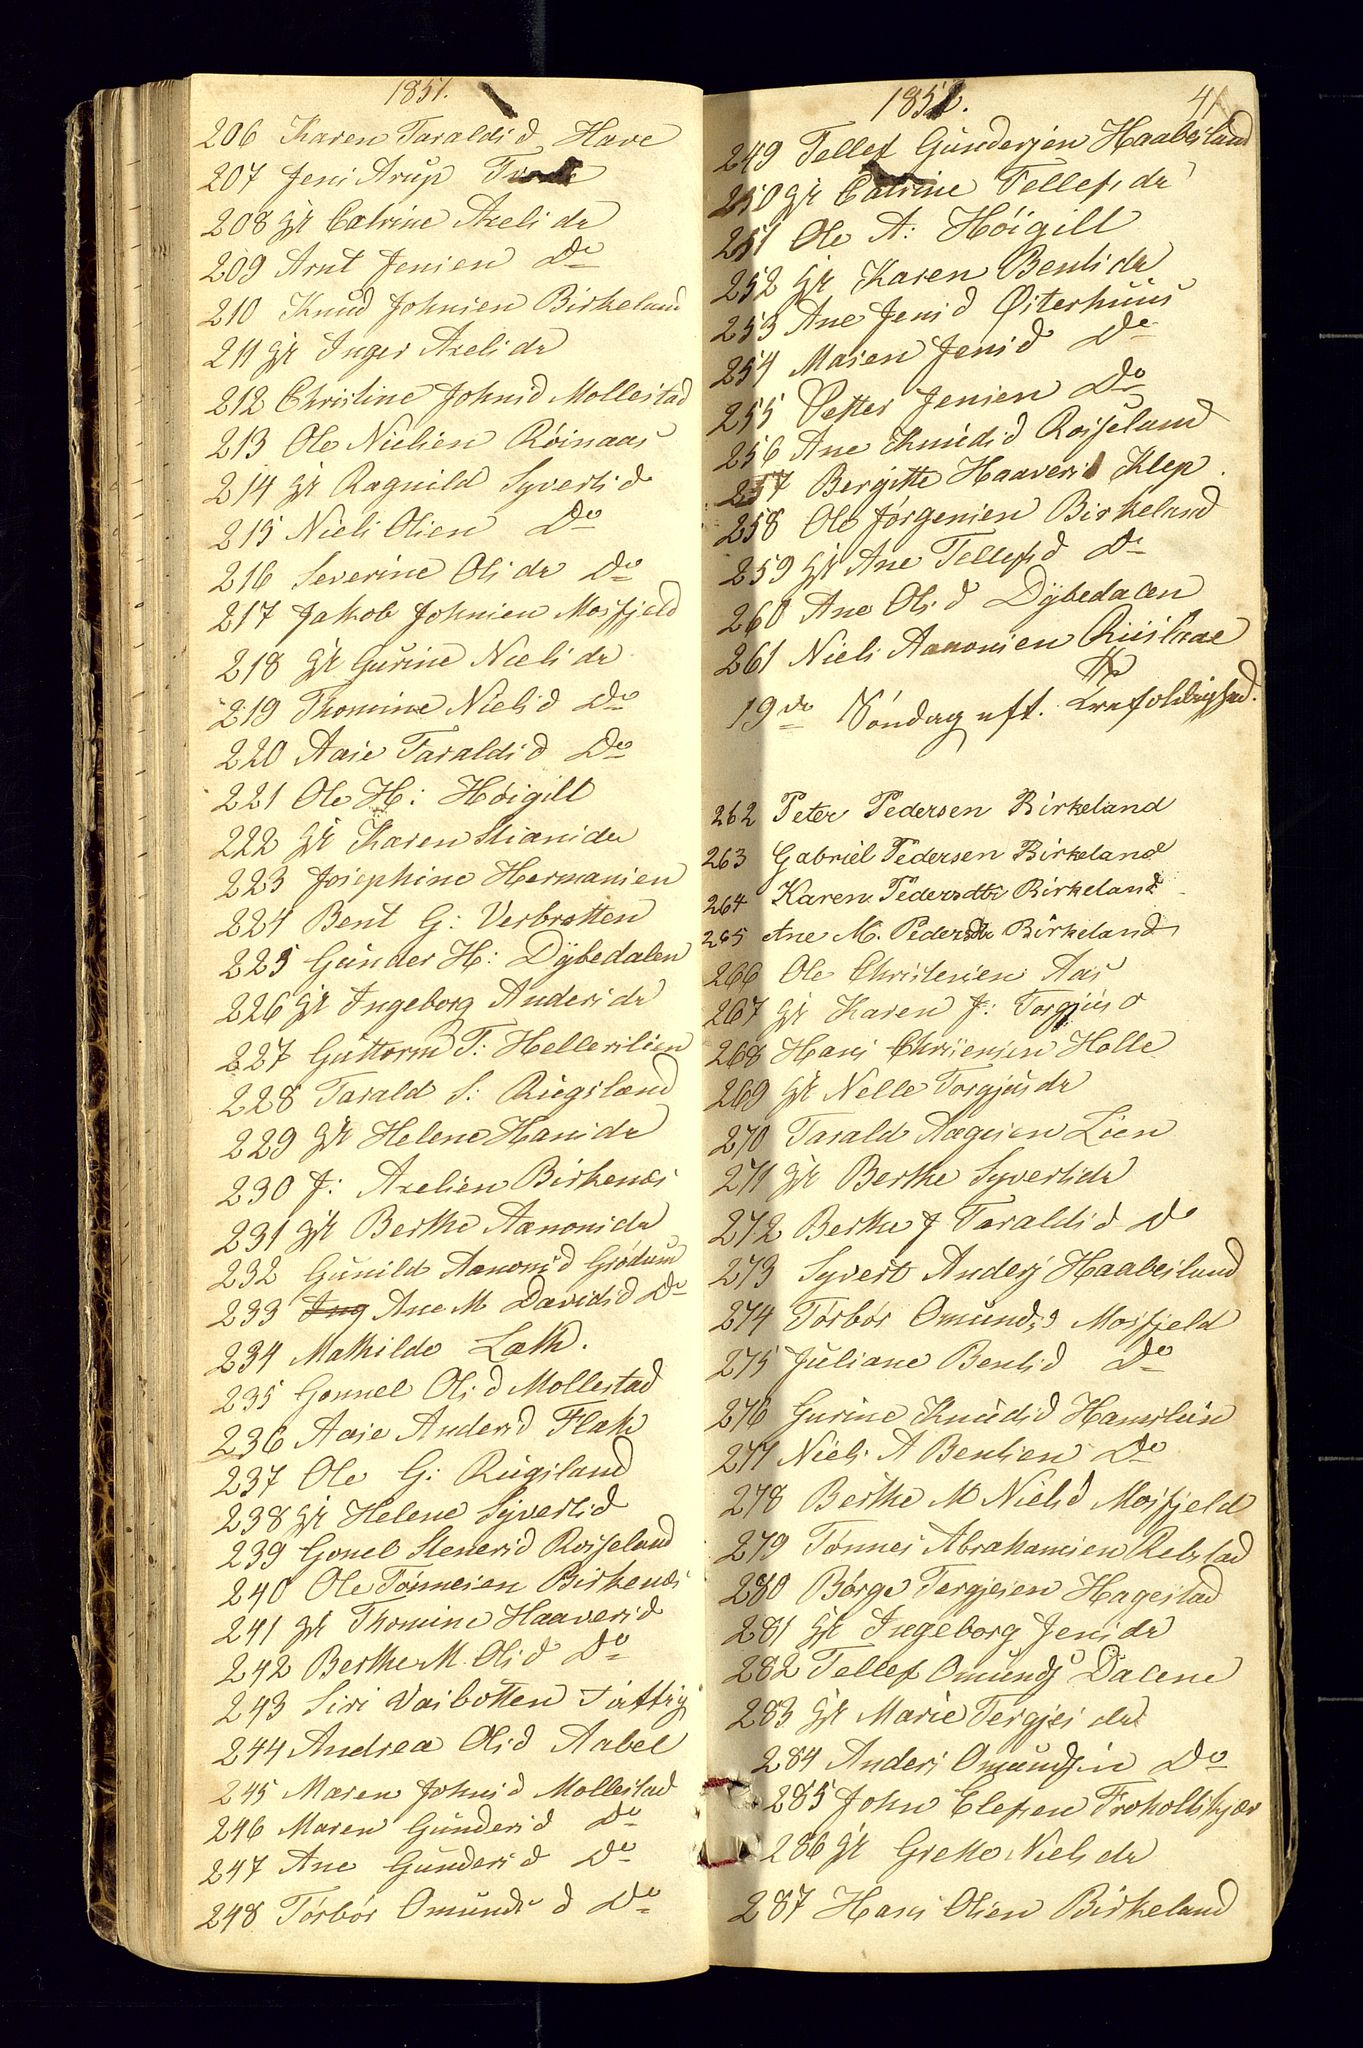 1851.
206 Karen Taraldsd Have
207 Jens Arup
208 gt Catrine Axelsdr
209 Arnt Jensen Do
210 Knud Johnsen Birkeland
211 gt Inger Axelsdr
212 Christine Johnsd Mollestad
213 Ole Nielsen Røinaas
214 gt Ragnild Syvertsd
215 Niels Olsen Do
216 Severine Olsdr Do
217 Jakob Johnsen Mosfjeld
218 gt Gurine Nielsdr
219 Thomine Nielsd Do
220 Aase Taraldsd Do
221 Ole H: Høigilt
222 gt Karen Stiansdr
223 Josephine Hermansen
224 Bent G: Verbrotten
225 Gunder H: Dybedalen
226 gt Ingeborg Andersdr
227 Guttorm T: Hellerslien
228 Tarald S: Rugsland
229 gt Helene Hansdr
230 J: Axelsen Birkenæs
231 gt Berthe Aanonsdr
232 Gunild Aanonsd Grødum
233 Ane M Davidsd Do
234 Mathilde Læth.
235 Gonnel Olsd Mollestad
236 Aase Andersd Flak
237 Ole G: Rugsland
238 gt Helene Syvertsd
239 Gonel Stenersd Rosseland
240 Ole Tønnesen Birkenæs
241 gt Thomine Haaversd
242 Berthe M. Olsd Do
243 Siri Vasbotten
244 Andrea Olsd Aabel
245 Maren Johnsd Mollestad
246 Maren Gundersd Do
247 Ane Gundersd Do
248 Tørbør Omundsd Do
1852. 41
249 Tellef Gundersen Haabesland
250 gt Catrine Tellefsdr
251 Ole A: Høigilt
252 gt Karen Bentsdr
253 Ane Jensd Østerhuus
254 Maren Jensd Do
255 Petter Jensen Do
256 Ane Knudsd Rosseland
257 Bergitte Haavers Klep
258 Ole Jørgensen Birkeland
259 gt Ane Tellefsd Do
260 Ane Olsd Dybedalen
261 Niels Aanonsen
19de Søndag eft. Trefoldighed.
262 Peter Pedersen Birkeland
263 Gabriel Pedersen Birkeland
264 Karen Pedersdtr Birkeland
265 Ane M. Pedersdtr Birkeland
266 Ole Christensen Aas
267 gt Karen J: Torgjus
268 Hans Christensen Holle
269 gt Nelle Torgjusdr
270 Tarald Aagesen Lien
271 gt Berthe Syvertsdr
272 Berthe J Taraldsd Do
273 Syvert Anders Haabesland
274 Tørbør Omundsd Mosfjeld
275 Juliane Bentsd Do
276 Gurine Knudsd Hamrslien
277 Niels A Bentsen Do
278 Berthe M Nielsd Mosfjeld
279 Tønnes Abrahamsen Retstad
280 Børge Tergjesen Hagestad
281 gt Ingeborg Jensdr
282 Tellef Omunds Dalene
283 gt Marie Tergjesdr
284 Anders Omundsen Do
285 John Elefsen Trokolskjær
286 gt Grette Nielsdr
287 Hans Olsen Birkeland